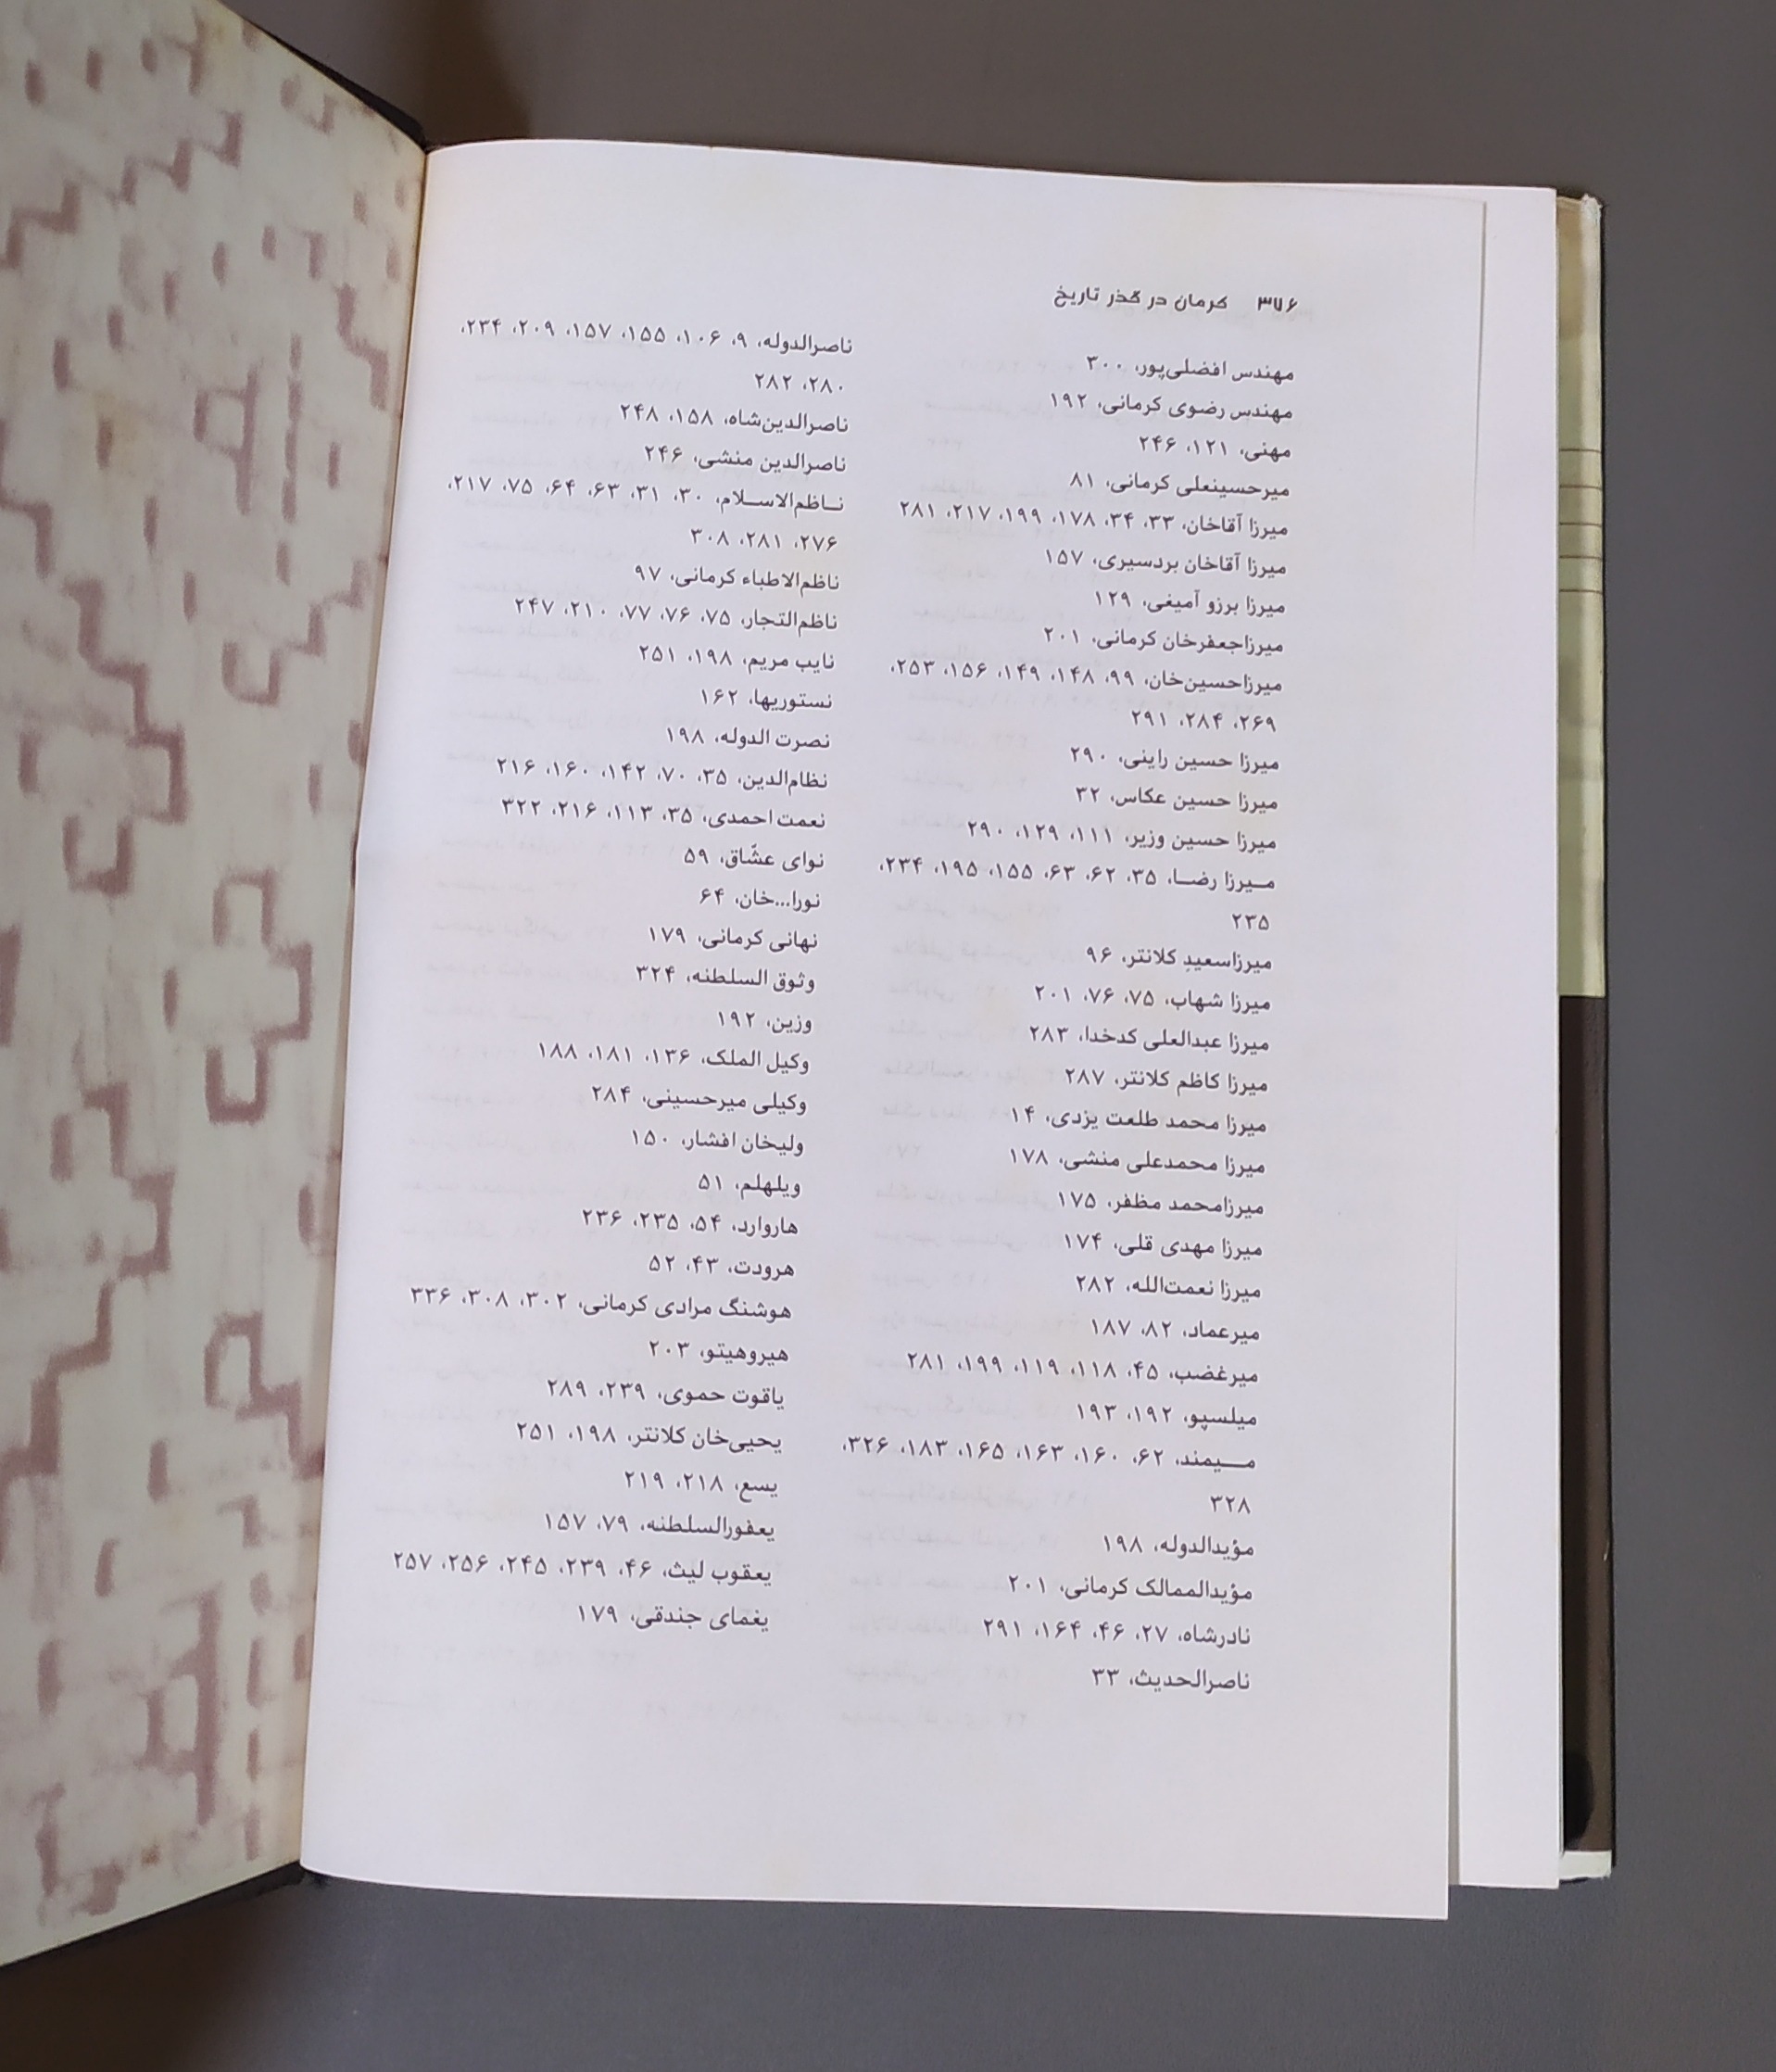 ۳۷۶ کرمان در گذر تاریخ
مهندس افضلی‌پور، ۳۰۰
مهندس رضوی کرمانی، ۱۹۲
مهنی، ۱۲۱، ۲۴۶
میرحسینعلی کرمانی، ۸۱
میرزا آقاخان، ۳۳، ۳۴، ۱۷۸، ۱۹۹، ۲۱۷، ۲۸۱
میرزا آقاخان بردسیری، ۱۵۷
میرزا برزو آمیغی، ۱۲۹
میرزاجعفرخان کرمانی، ۲۰۱
میرزاحسین‌خان، ۹۹، ۱۴۸، ۱۴۹، ۱۵۶، ۲۵۳،
۲۶۹، ۲۸۴، ۲۹۱
میرزا حسین راینی، ۲۹۰
میرزا حسین عکاس، ۳۲
میرزا حسین وزیر، ۱۱۱، ۱۲۹، ۲۹۰
مـیرزا رضـا، ۳۵، ۶۲، ۶۳، ۱۵۵، ۱۹۵، ۲۳۴،
۲۳۵
میرزاسعیدِ کلانتر، ۹۶
میرزا شهاب، ۷۵، ۷۶، ۲۰۱
میرزا عبدالعلی کدخدا، ۲۸۳
میرزا کاظم کلانتر، ۲۸۷
میرزا محمد طلعت یزدی، ۱۴
میرزا محمدعلی منشی، ۱۷۸
میرزامحمد مظفر، ۱۷۵
میرزا مهدی قلی، ۱۷۴
میرزا نعمت‌الله، ۲۸۲
میرعماد، ۸۲، ۱۸۷
میرغضب، ۴۵، ۱۱۸، ۱۱۹، ۱۹۹، ۲۸۱
میلسپو، ۱۹۲، ۱۹۳
مـــیمند، ۶۲، ۱۶۰، ۱۶۳، ۱۶۵، ۱۸۳، ۳۲۶،
۳۲۸
مؤیدالدوله، ۱۹۸
مؤیدالممالک کرمانی، ۲۰۱
نادرشاه، ۲۷، ۴۶، ۱۶۴، ۲۹۱
ناصرالحدیث، ۳۳
ناصرالدوله، ۹، ۱۰۶، ۱۵۵، ۱۵۷، ۲۰۹، ۲۳۴،
۲۸۰، ۲۸۲
ناصرالدین‌شاه، ۱۵۸، ۲۴۸
ناصرالدین منشی، ۲۴۶
نـاظم‌الاسـلام، ۳۰، ۳۱، ۶۳، ۶۴، ۷۵، ۲۱۷،
۲۷۶، ۲۸۱، ۳۰۸
ناظم‌الاطباء کرمانی، ۹۷
ناظم‌التجار، ۷۵، ۷۶، ۷۷، ۲۱۰، ۲۴۷
نایب مریم، ۱۹۸، ۲۵۱
نستوریها، ۱۶۲
نصرت الدوله، ۱۹۸
نظام‌الدین، ۳۵، ۷۰، ۱۴۲، ۱۶۰، ۲۱۶
نعمت احمدی، ۳۵، ۱۱۳، ۲۱۶، ۳۲۲
نوای عشّاق، ۵۹
نورا...خان، ۶۴
نهانی کرمانی، ۱۷۹
وثوق السلطنه، ۳۲۴
وزین، ۱۹۲
وکیل الملک، ۱۳۶، ۱۸۱، ۱۸۸
وکیلی میرحسینی، ۲۸۴
ولیخان افشار، ۱۵۰
ویلهلم، ۵۱
هاروارد، ۵۴، ۲۳۵، ۲۳۶
هرودت، ۴۳، ۵۲
هوشنگ مرادی کرمانی، ۳۰۲، ۳۰۸، ۳۳۶
هیروهیتو، ۲۰۳
یاقوت حموی، ۲۳۹، ۲۸۹
یحیی‌خان کلانتر، ۱۹۸، ۲۵۱
یسع، ۲۱۸، ۲۱۹
یعفورالسلطنه، ۷۹، ۱۵۷
یعقوب لیث، ۴۶، ۲۳۹، ۲۴۵، ۲۵۶، ۲۵۷
یغمای جندقی، ۱۷۹